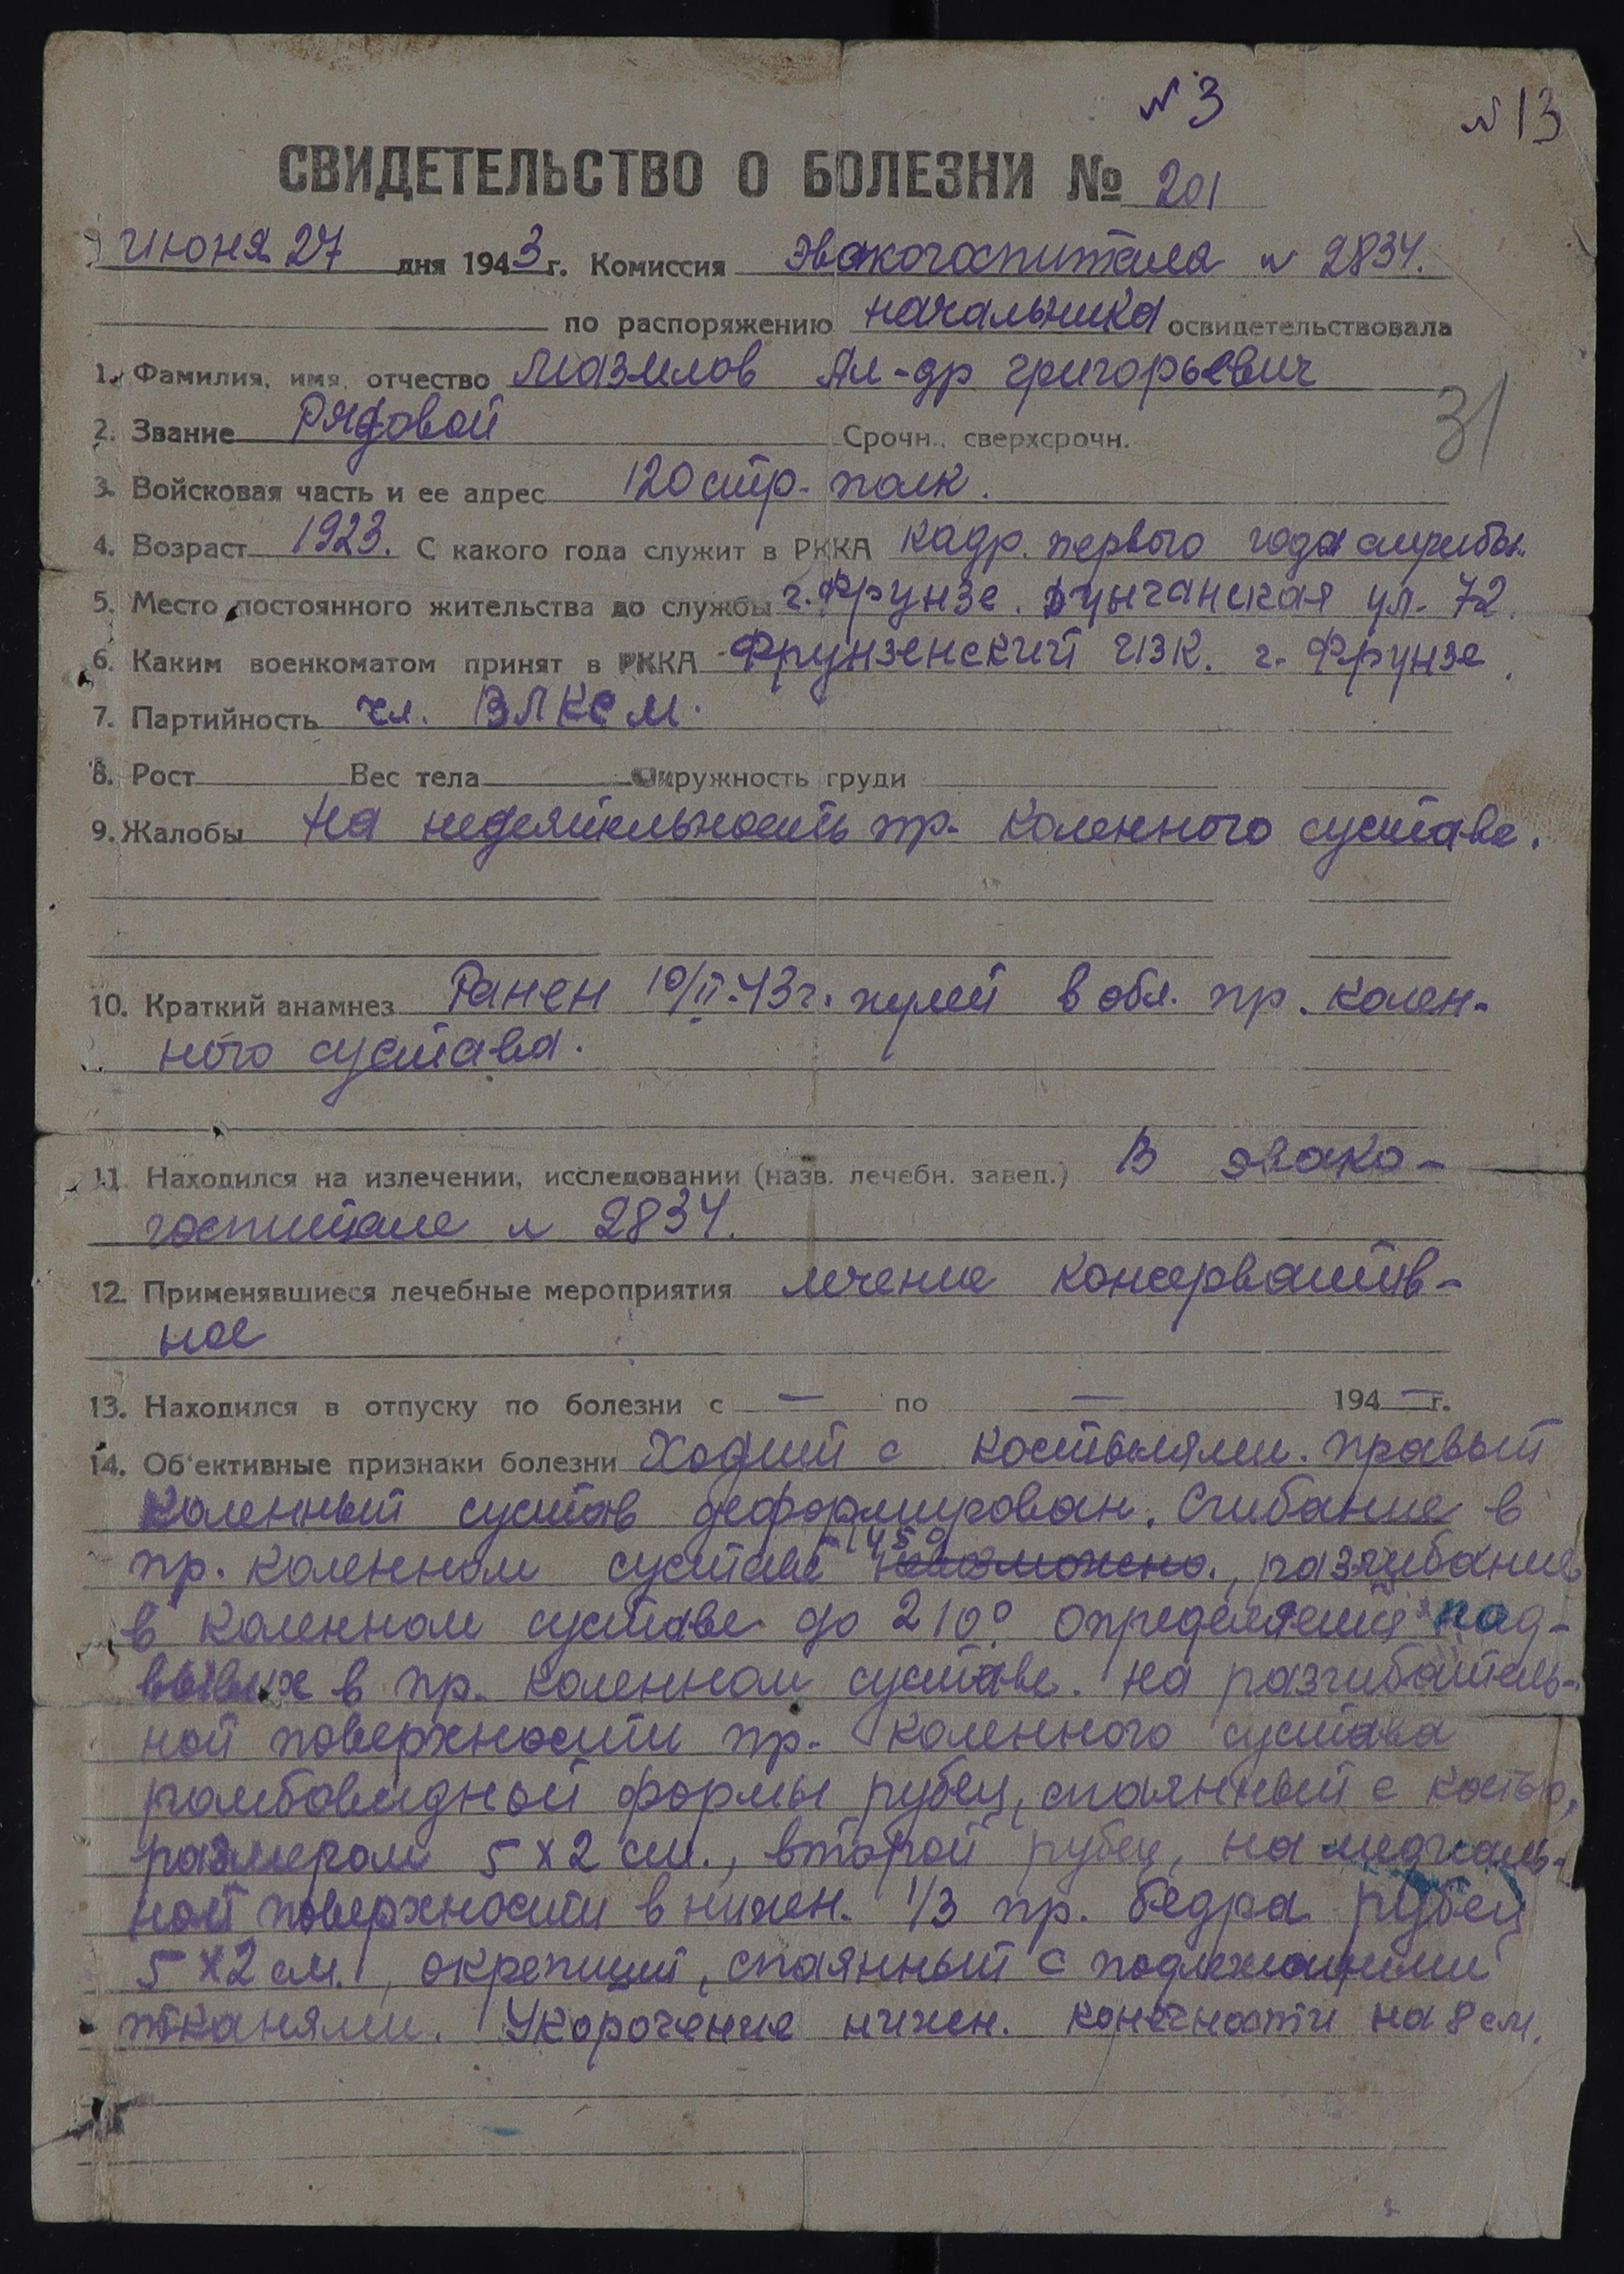 № 3
№ 13
СВИДЕТЕЛЬСТВО О БОЛЕЗНИ № 201
Июня 27 дня 1943 г. Комиссия эвакогоспиталя № 2834.
по распоряжению начальника освидетельствовала
31
1. Фамилия, имя, отчество Мазилов Ал-др Григорьевич
2. Звание Рядовой Срочн., сверхсрочн.
3. Войсковая часть и ее адрес 120 стр. полк.
4. Возраст 1923. С какого года служит в РККА кадр. первого года службы.
5. Место постоянного жительства до службы г. Фрунзе. Дунганская ул. 72.
6. Каким военкоматом принят в РККА Фрунзенский г. Фрунзе.
7. Партийность чл. ВЛКСМ.
8. Рост Вес тела Окружность груди
9. Жалобы на недеятельность пр. коленного сустава.
10. Краткий анамнез Ранен 10/II-43 г. пулей в обл. пр. колен-
ного сустава.
11. Находился на излечении, исследовании (назв. лечебн. завед.) В эвако-
госпитале № 2834.
12. Применявшиеся лечебные мероприятия лечение консерватив-
ное
13. Находился в отпуску по болезни с — по — 194 — г.
14. Об'ективные признаки болезни Ходит с костылями. Правый
коленный сустав деформирован. Сгибание в
пр. коленном суставе 145° невозможно, разгибание
в коленном суставе до 210° определяется под-
вывих в пр. коленном суставе. На разгибатель-
ной поверхности пр. коленного сустава
ромбовидной формы рубец, спаянный с костью,
размером 5 х 2 см., второй рубец, на медиаль-
ной поверхности в нижн. 1/3 пр. бедра рубец
5 х 2 см., окрепший, спаянный с подлежащими
тканями. Укорочение нижн. конечности на 8 см.